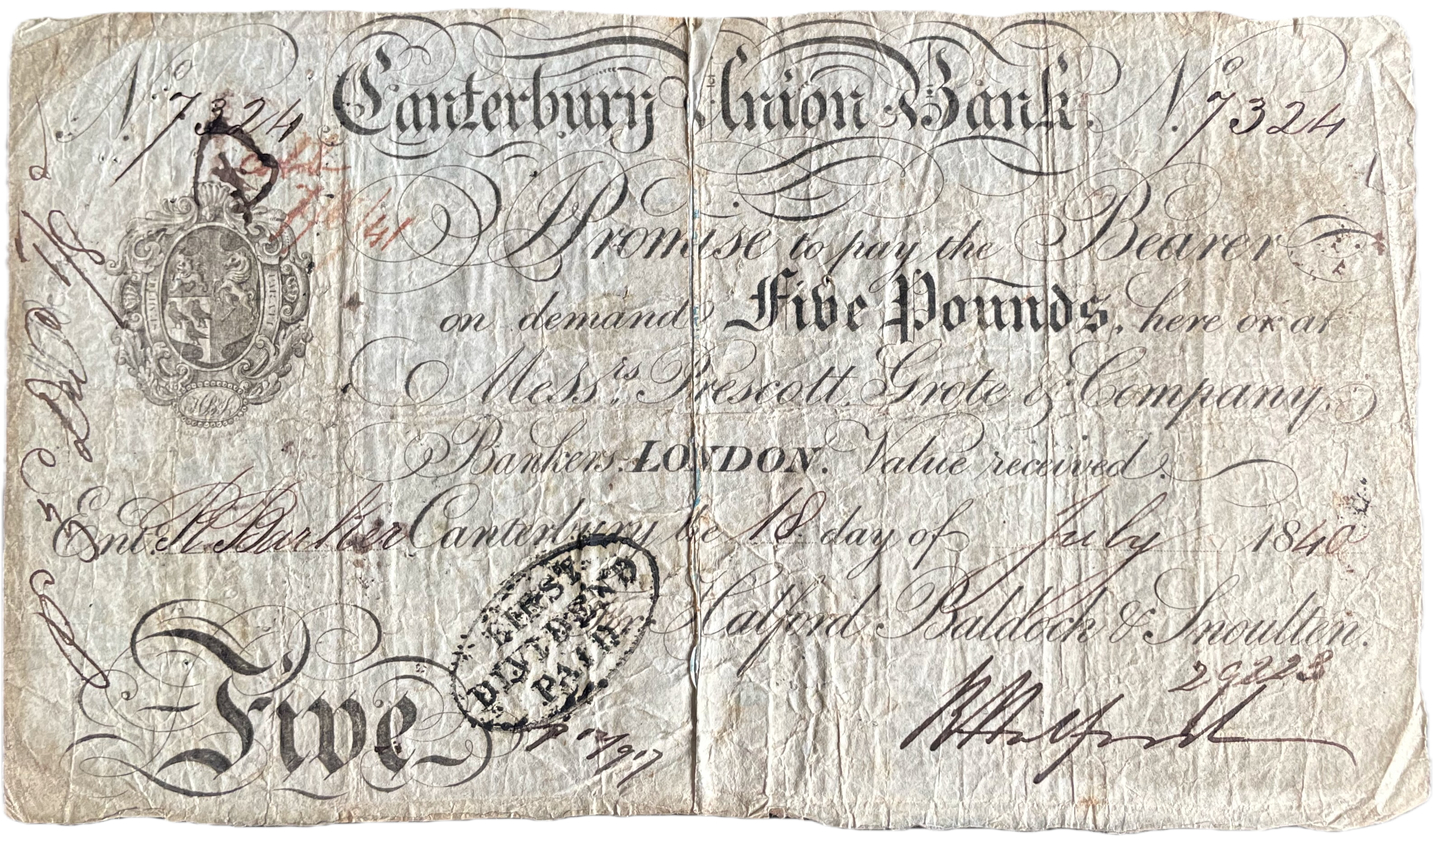 No. 7324 Canterbury Union Bank. No. 7324
I Promise to pay the Bearer
on demand Five Pounds, here or at
Messrs. Prescott, Grote & Company,
Bankers, LONDON. Value received.
Entd. R Barker Canterbury the 18 day of July 1840
For Halford Baldock & Snoulten.
29223
FIRST
DIVIDEND
PAID
Five